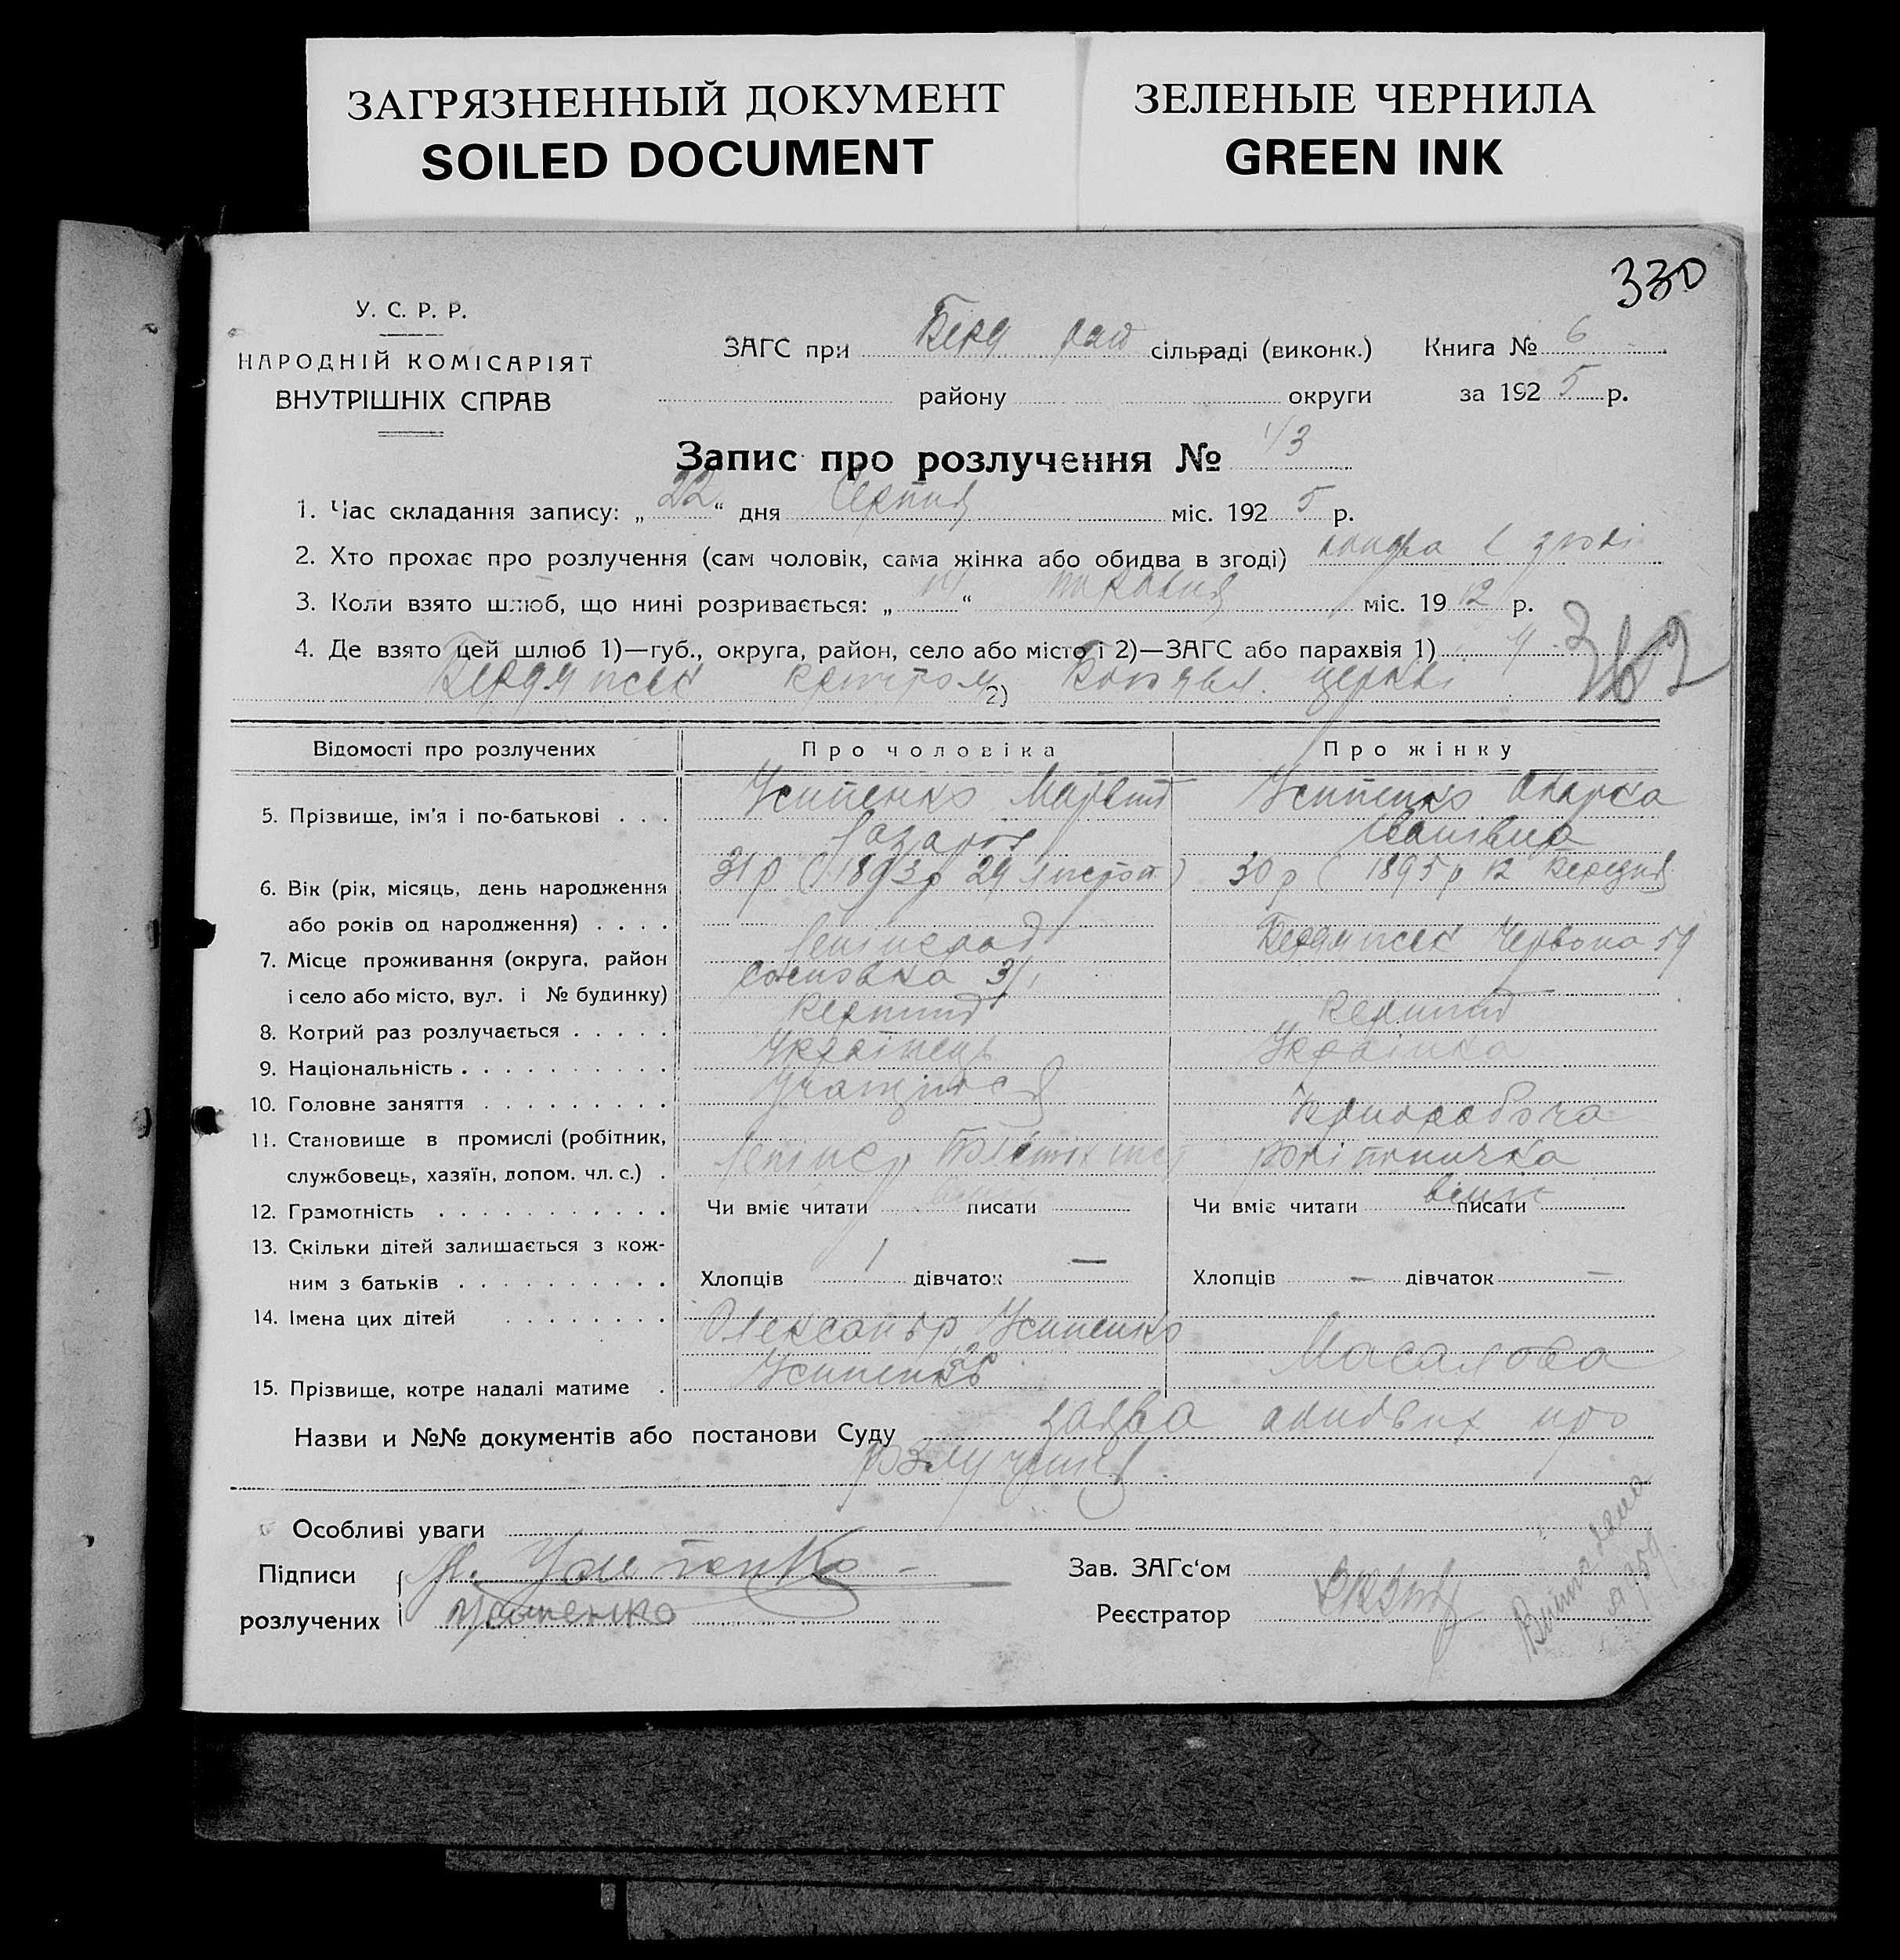 ЗАГРЯЗНЕННЫЙ ДОКУМЕНТ
SOILED DOCUMENT
ЗЕЛЕНЫЕ ЧЕРНИЛА
GREEN INK
330
У. С. Р. Р.
НАРОДНІЙ КОМІСАРІЯТ
ВНУТРІШНІХ СПРАВ
ЗАГС при Берд рай сільраді (виконк.) Книга № 6
району округи за 1925 р.
Запис про розлучення № 13
1. Час складання запису: „22“ дня Серпня міс. 1925 р.
2. Хто прохає про розлучення (сам чоловік, сама жінка або обидва в згоді)
3. Коли взято шлюб, що нині розривається: „ “ травня міс. 1912 р.
4. Де взято цей шлюб 1)—губ., округа, район, село або місто і 2)—ЗАГС або парахвія 1)
Бердянськ 2) церкві
Відомості про розлучених Про чоловіка Про жінку
5. Прізвище, ім'я і по-батькові . . . Усипенко Усипенко
Іванівна
6. Вік (рік, місяць, день народження або років од народження) . . . . 31 р (1893р 29 листоп) 30 р (1895р 12 Вересня
7. Місце проживання (округа, район і село або місто, вул. і № будинку) Ленінград Бердянськ Червона 59
8. Котрий раз розлучається . . . . . Перший Перший
9. Національність . . . . . . . . . . Українець Українка
10. Головне заняття . . . . . . . . . Учащійся Чорноробоча
11. Становище в промислі (робітник, службовець, хазяїн, допом. чл. с.) . робітничка
12. Грамотність . . . . . . . . . . . Чи вміє читати писати Чи вміє читати вміє писати
13. Скільки дітей залишається з кожним з батьків . . . . . . . . . . Хлопців 1 дівчаток — Хлопців — дівчаток —
14. Імена цих дітей . . . . . . . . Олександр Усипенко
15. Прізвище, котре надалі матиме . Усипенко Масалова
Назви и №№ документів або постанови Суду заява про
розлучення
Особливі уваги
Підписи розлучених Усипенко
Усипенко
Зав. ЗАГс‘ом
Реєстратор